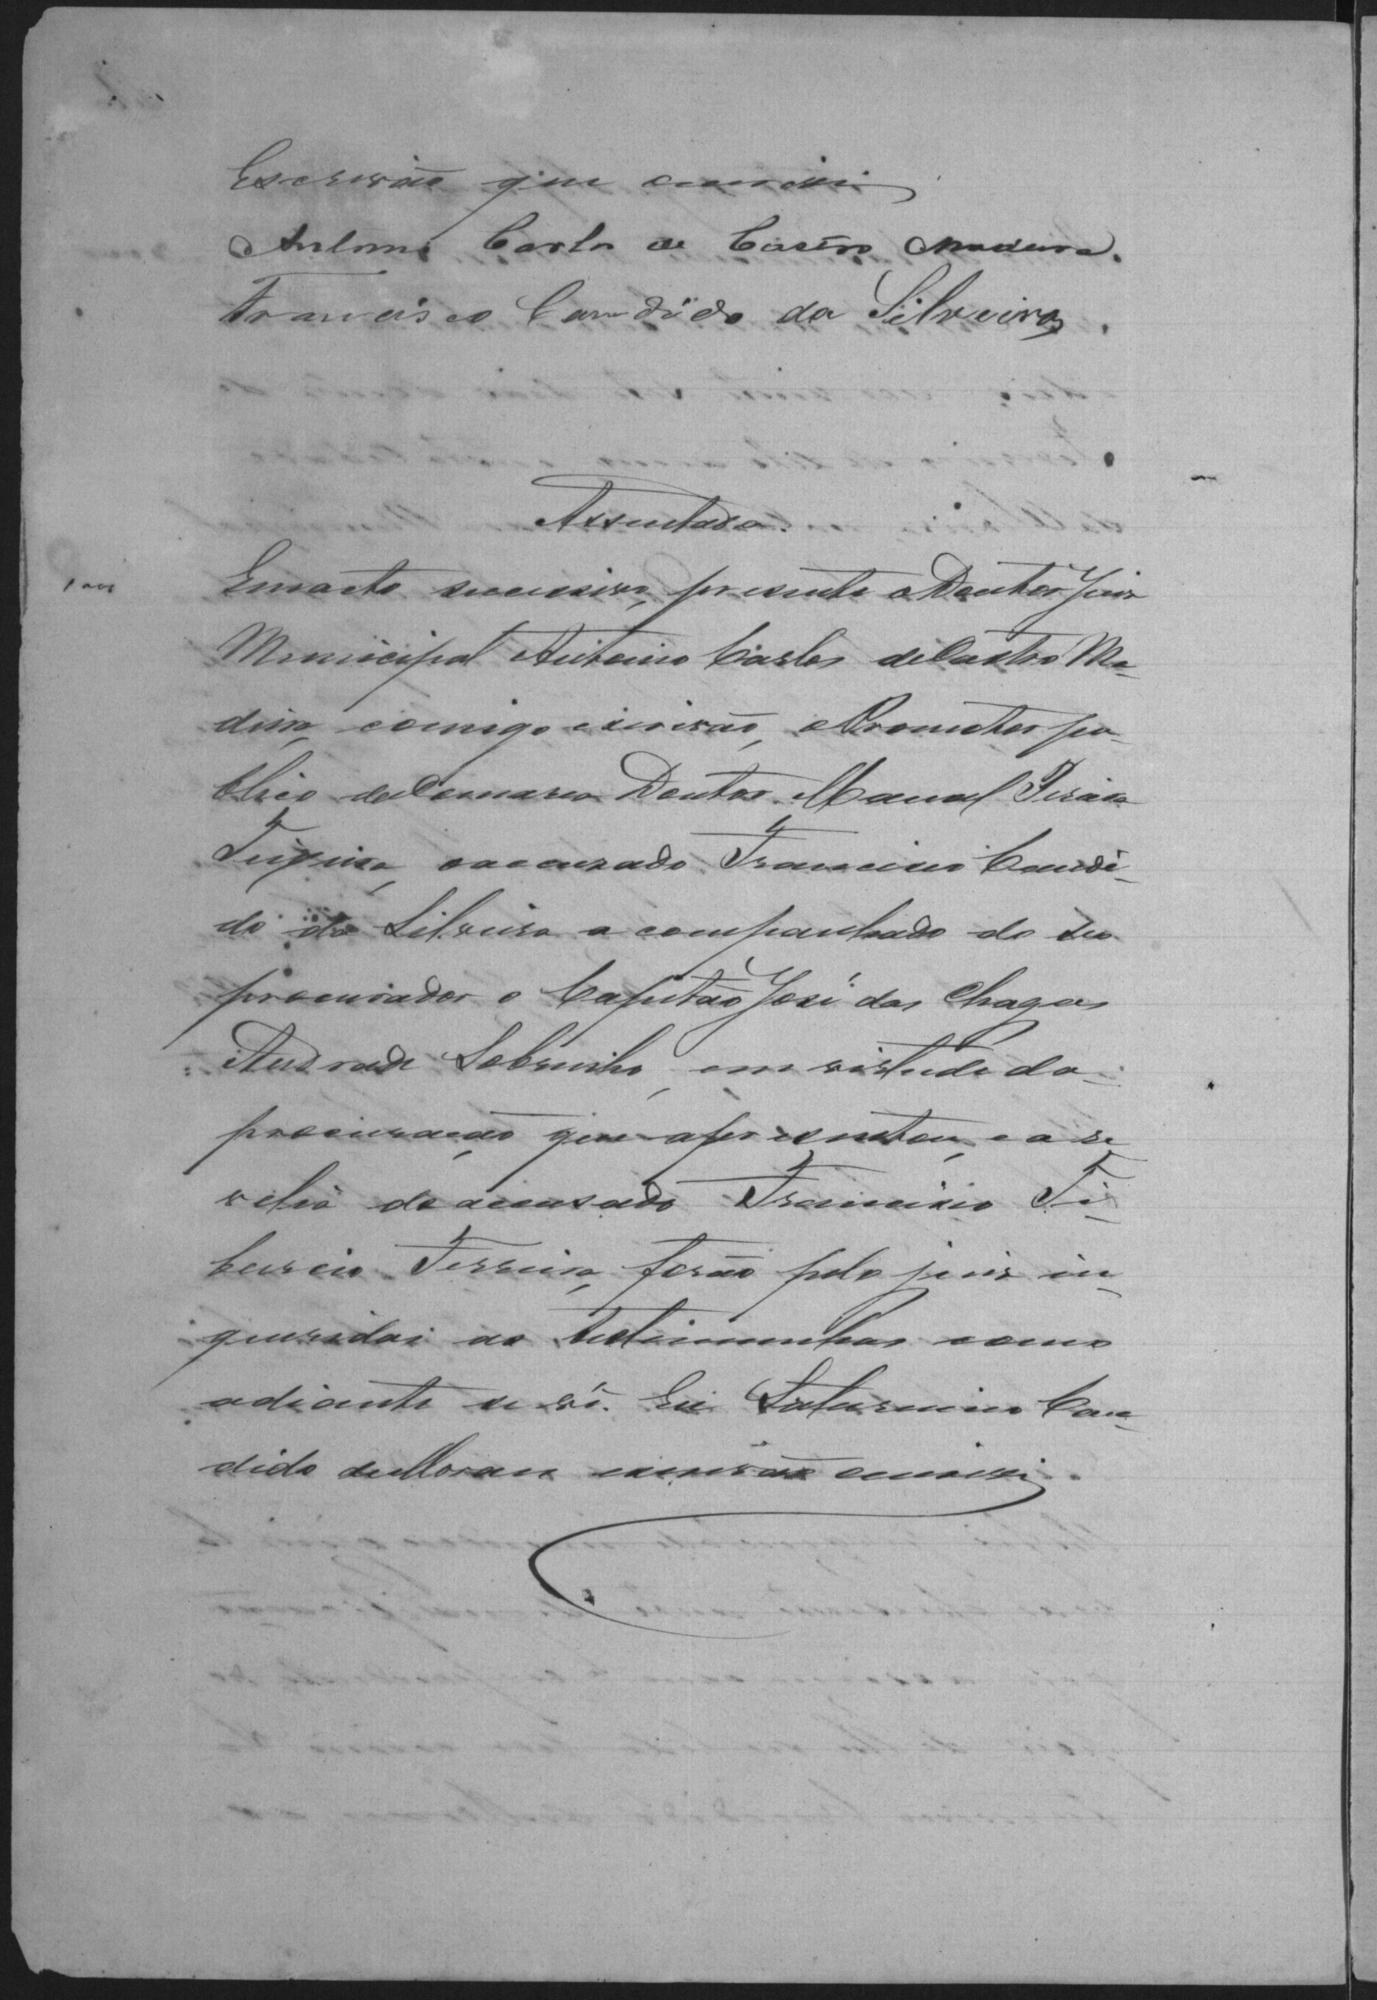 Escrivão que escrevi
Antonio Carlos de Castro Madeira.
Francisco Candido da Silveira
Assentada.
Em acto successivo, presente o Doutor Juiz
Municipal Antonio Carlos de Castro Ma-
deira, comigo escrivão, o Promotor pu-
blico da Comarca Doutor Manoel
Teixeira, o accusado Francisco Candi-
do da Silveira acompanhado de seu
procurador o Capitão José das Chagas
Andrade Sobrinho, em virtude da
procuração que apresentou, e a re-
velia do accusado Francisco Ti-
burcio Ferreira, forão pelo juiz in-
queridas as testimunhas como
adiante se vê. Eu Saturnino Can-
dido de Moraes escrivão escrevi.